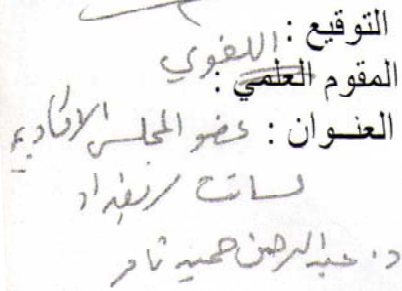 التوقيع :
اللغوي
المقوم العلمي :
العنــوان : عضو المجلس الأكاديمي
د. عبد الرحمن حميد ثامر